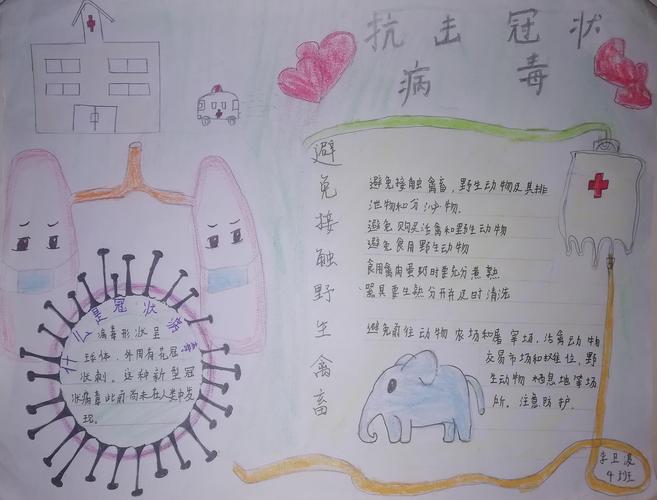 抗击冠状
病毒
什么是冠状
病毒形状呈
球体、外周有花冠
状刺。这种新型冠
状病毒此前尚未在人类中发
现。
避免接触野生禽畜
避免接触禽畜,野生动物及其排
泄物和分泌物.
避免购买活禽和野生动物
避免食用野生动物
食用禽肉蛋奶时要充分煮熟
器具要生熟分开并及时清洗
避免前往动物农场和屠宰场、活禽动物
交易市场和摊位,野
生动物栖息地等场
所。注意防护.
4班